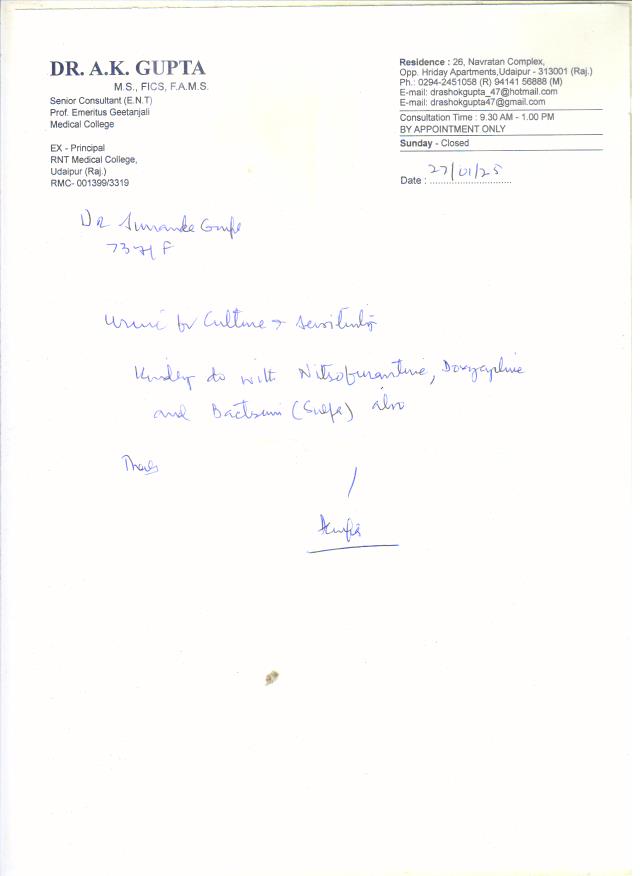 DR. A.K. GUPTA
M.S., FICS, F.A.M.S.
Senior Consultant (E.N.T)
Prof. Emeritus Geetanjali
Medical College
EX - Principal
RNT Medical College,
Udaipur (Raj.)
RMC- 001399/3319
Residence : 26, Navratan Complex,
Opp. Hriday Apartments,Udaipur - 313001 (Raj.)
Ph.: 0294-2451058 (R) 94141 56888 (M)
E-mail: drashokgupta_47@hotmail.com
E-mail: drashokgupta47@gmail.com
Consultation Time : 9.30 AM - 1.00 PM
BY APPOINTMENT ONLY
Sunday - Closed
Date : 27/01/25
Dr
73 F
Urine for Culture & Sensitivity
Kindly do with Nitrofurantine, Doxycycline
and Bactrim (Sulfa) also
Thanks